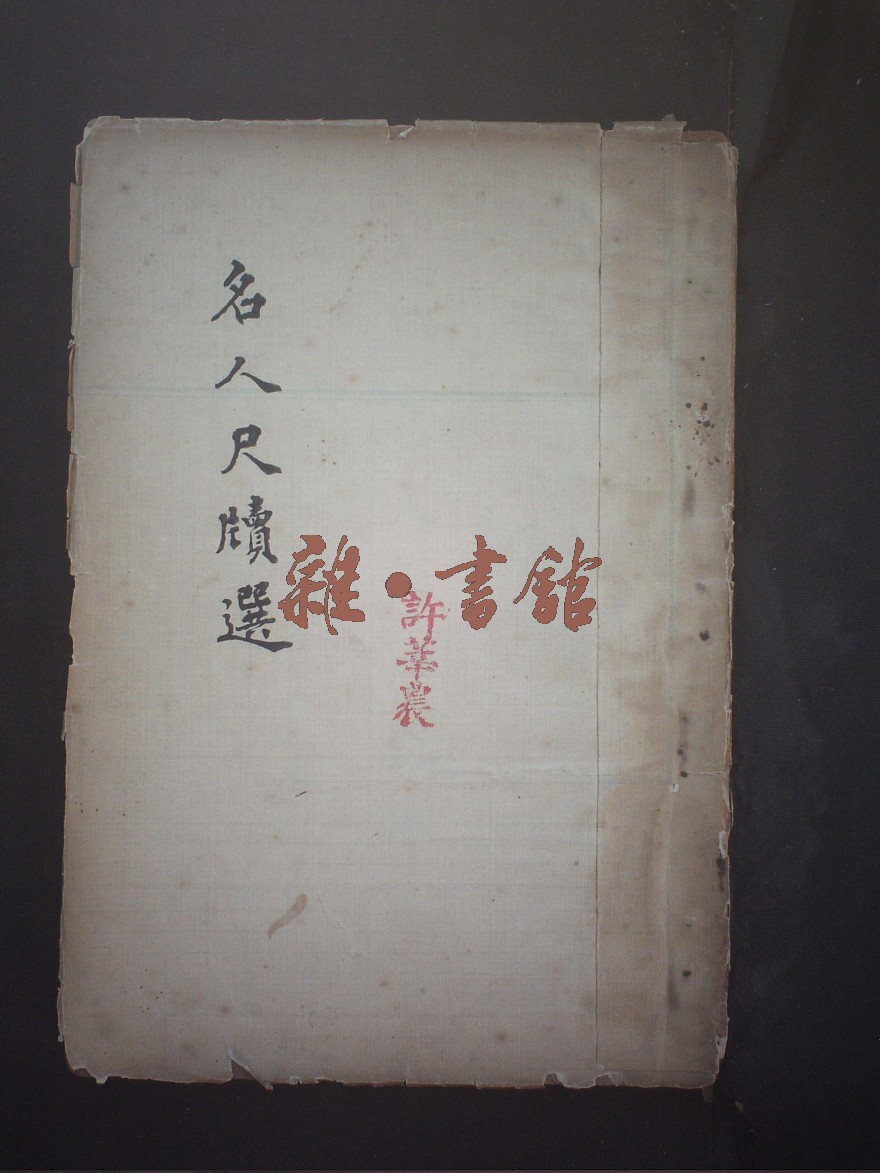 名人尺牘選
雜·書館
許華農